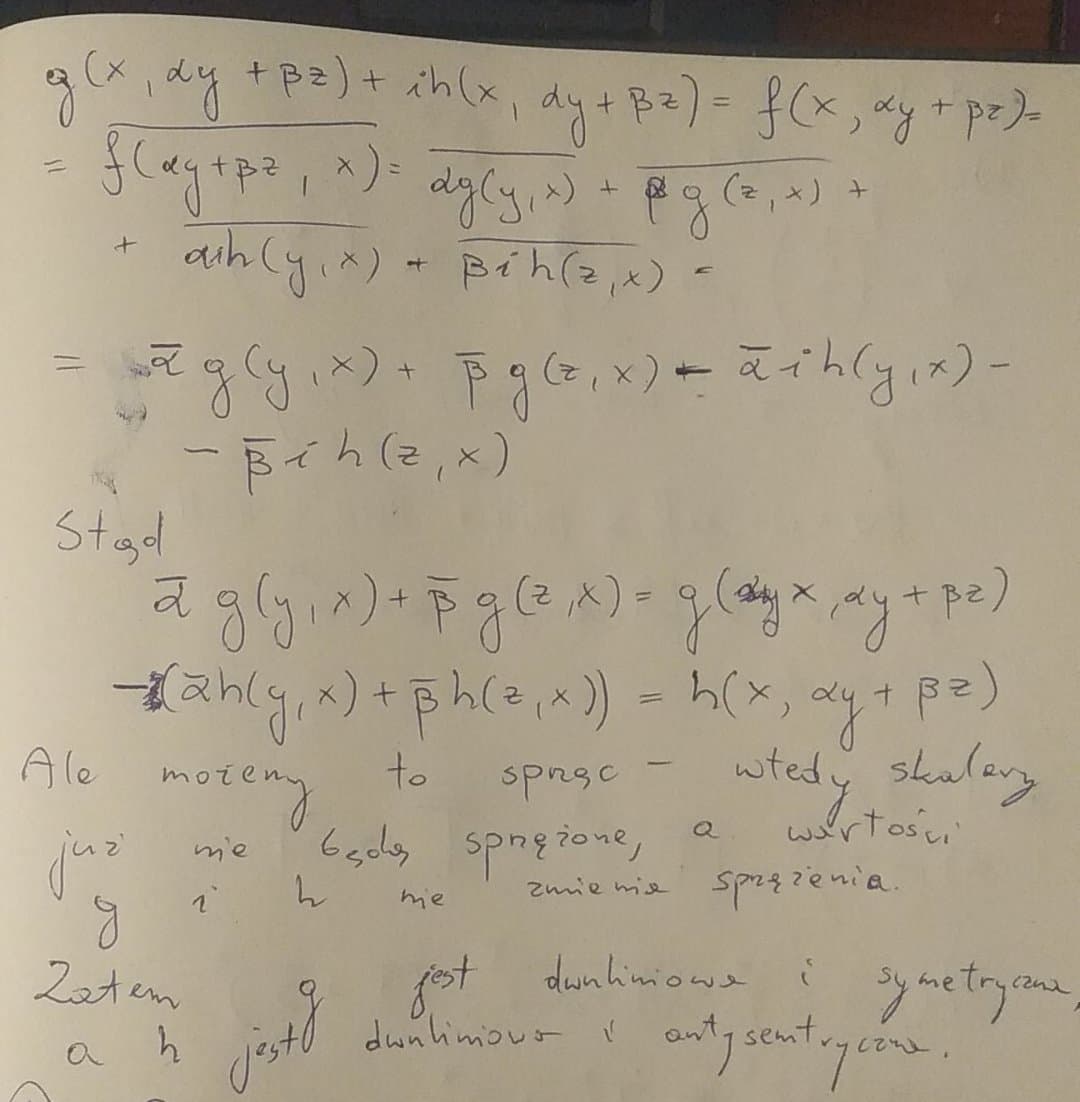 g(x, αy + βz) + ih(x, αy + βz) = f(x, αy + βz) =
= \overline{f(αy + βz, x)} = \overline{αg(y, x)} + \overline{βg(z, x)} +
+ \overline{αih(y, x)} + \overline{βih(z, x)} =
= ᾱg(y, x) + β̄g(z, x) - ᾱih(y, x) -
- β̄ih(z, x)
Stąd
ᾱg(y, x) + β̄g(z, x) = g(x, αy + βz)
-(ᾱh(y, x) + β̄h(z, x)) = h(x, αy + βz)
Ale możemy to sprząc - wtedy skalary
już nie będą sprzężone, a wartości
g i h nie zmienia sprzężenia.
Zatem g jest dwuliniowa i symetryczna,
a h jest dwuliniowa i antysemtryczna.